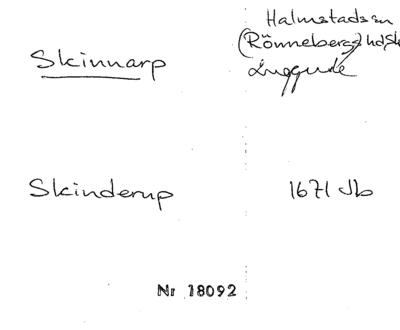 Halmstads sn
Skinnarp (Rönnebergs hd, Sk
Luggude
Skinderup 1671 Jb
Nr 18092